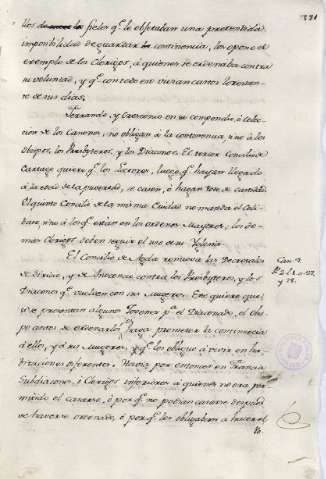 331
los fieles q.e le obgetaban una pretendida
imposibilidad de guardar la continencia, les opone el
exemplo de los Clerigos, á quienes se ordenaba contra
su voluntad, y q.e con todo eso vivian castos lo restan-
te de sus dias.
Ferrando, y Cresconio en su compendio, ó colec-
cion de los Canones, no obligan á la continencia, sino á los
Obispos, los Presbyteros, y los Diaconos. El tercer Concilio de
Cartago quiere q.e los Lectores, luego q.e hayan llegado
á la edad de la pubertad, se casen, ó hagan voto de castidad.
El quinto Concilio de la misma Ciudad no manda el Celi-
bato, sino á los q.e están en los ordenes mayores, los de-
mas Clerigos deben seguir el uso de su Yglesia.
El Concilio de Agda renueva las Decretales
de Siricio, y de Inocencio contra los Presbyteros, y los
Diaconos q.e vuelven con sus mugeres. Ese quiere que
si se presentan algunos Jovenes p.a el Diaconado, el Obis-
po antes de ordenarlos haga prometer la continencia
á ellos, y á sus mugeres, y q.e los obligue á vivir en ha-
bitaciones diferentes. Havia por entonces en Francia
Subdiaconos, ó Clerigos inferiores á quienes no era per-
mitido el casarse, ó por q.e no podian casarse despues
de haverse ordenado, ó por q.e los obligaban á hacer el
Can. 9
y 28.